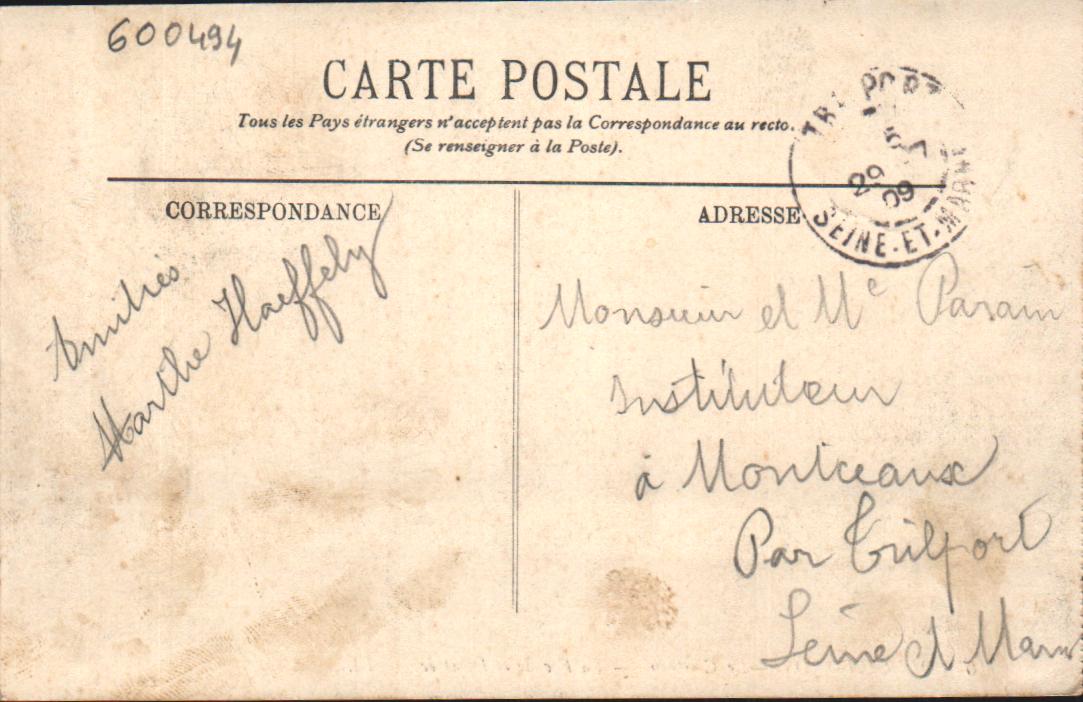 600494
CARTE POSTALE
Tous les Pays étrangers n'acceptent pas la Correspondance au recto.
(Se renseigner à la Poste).
CORRESPONDANCE
ADRESSE
29
09
SEINE-ET-MARNE
Amitiés
Marthe Haeffely
Monsieur et Me Parain
Instituteur
à Montceaux
Par Trilport
Seine et Marne